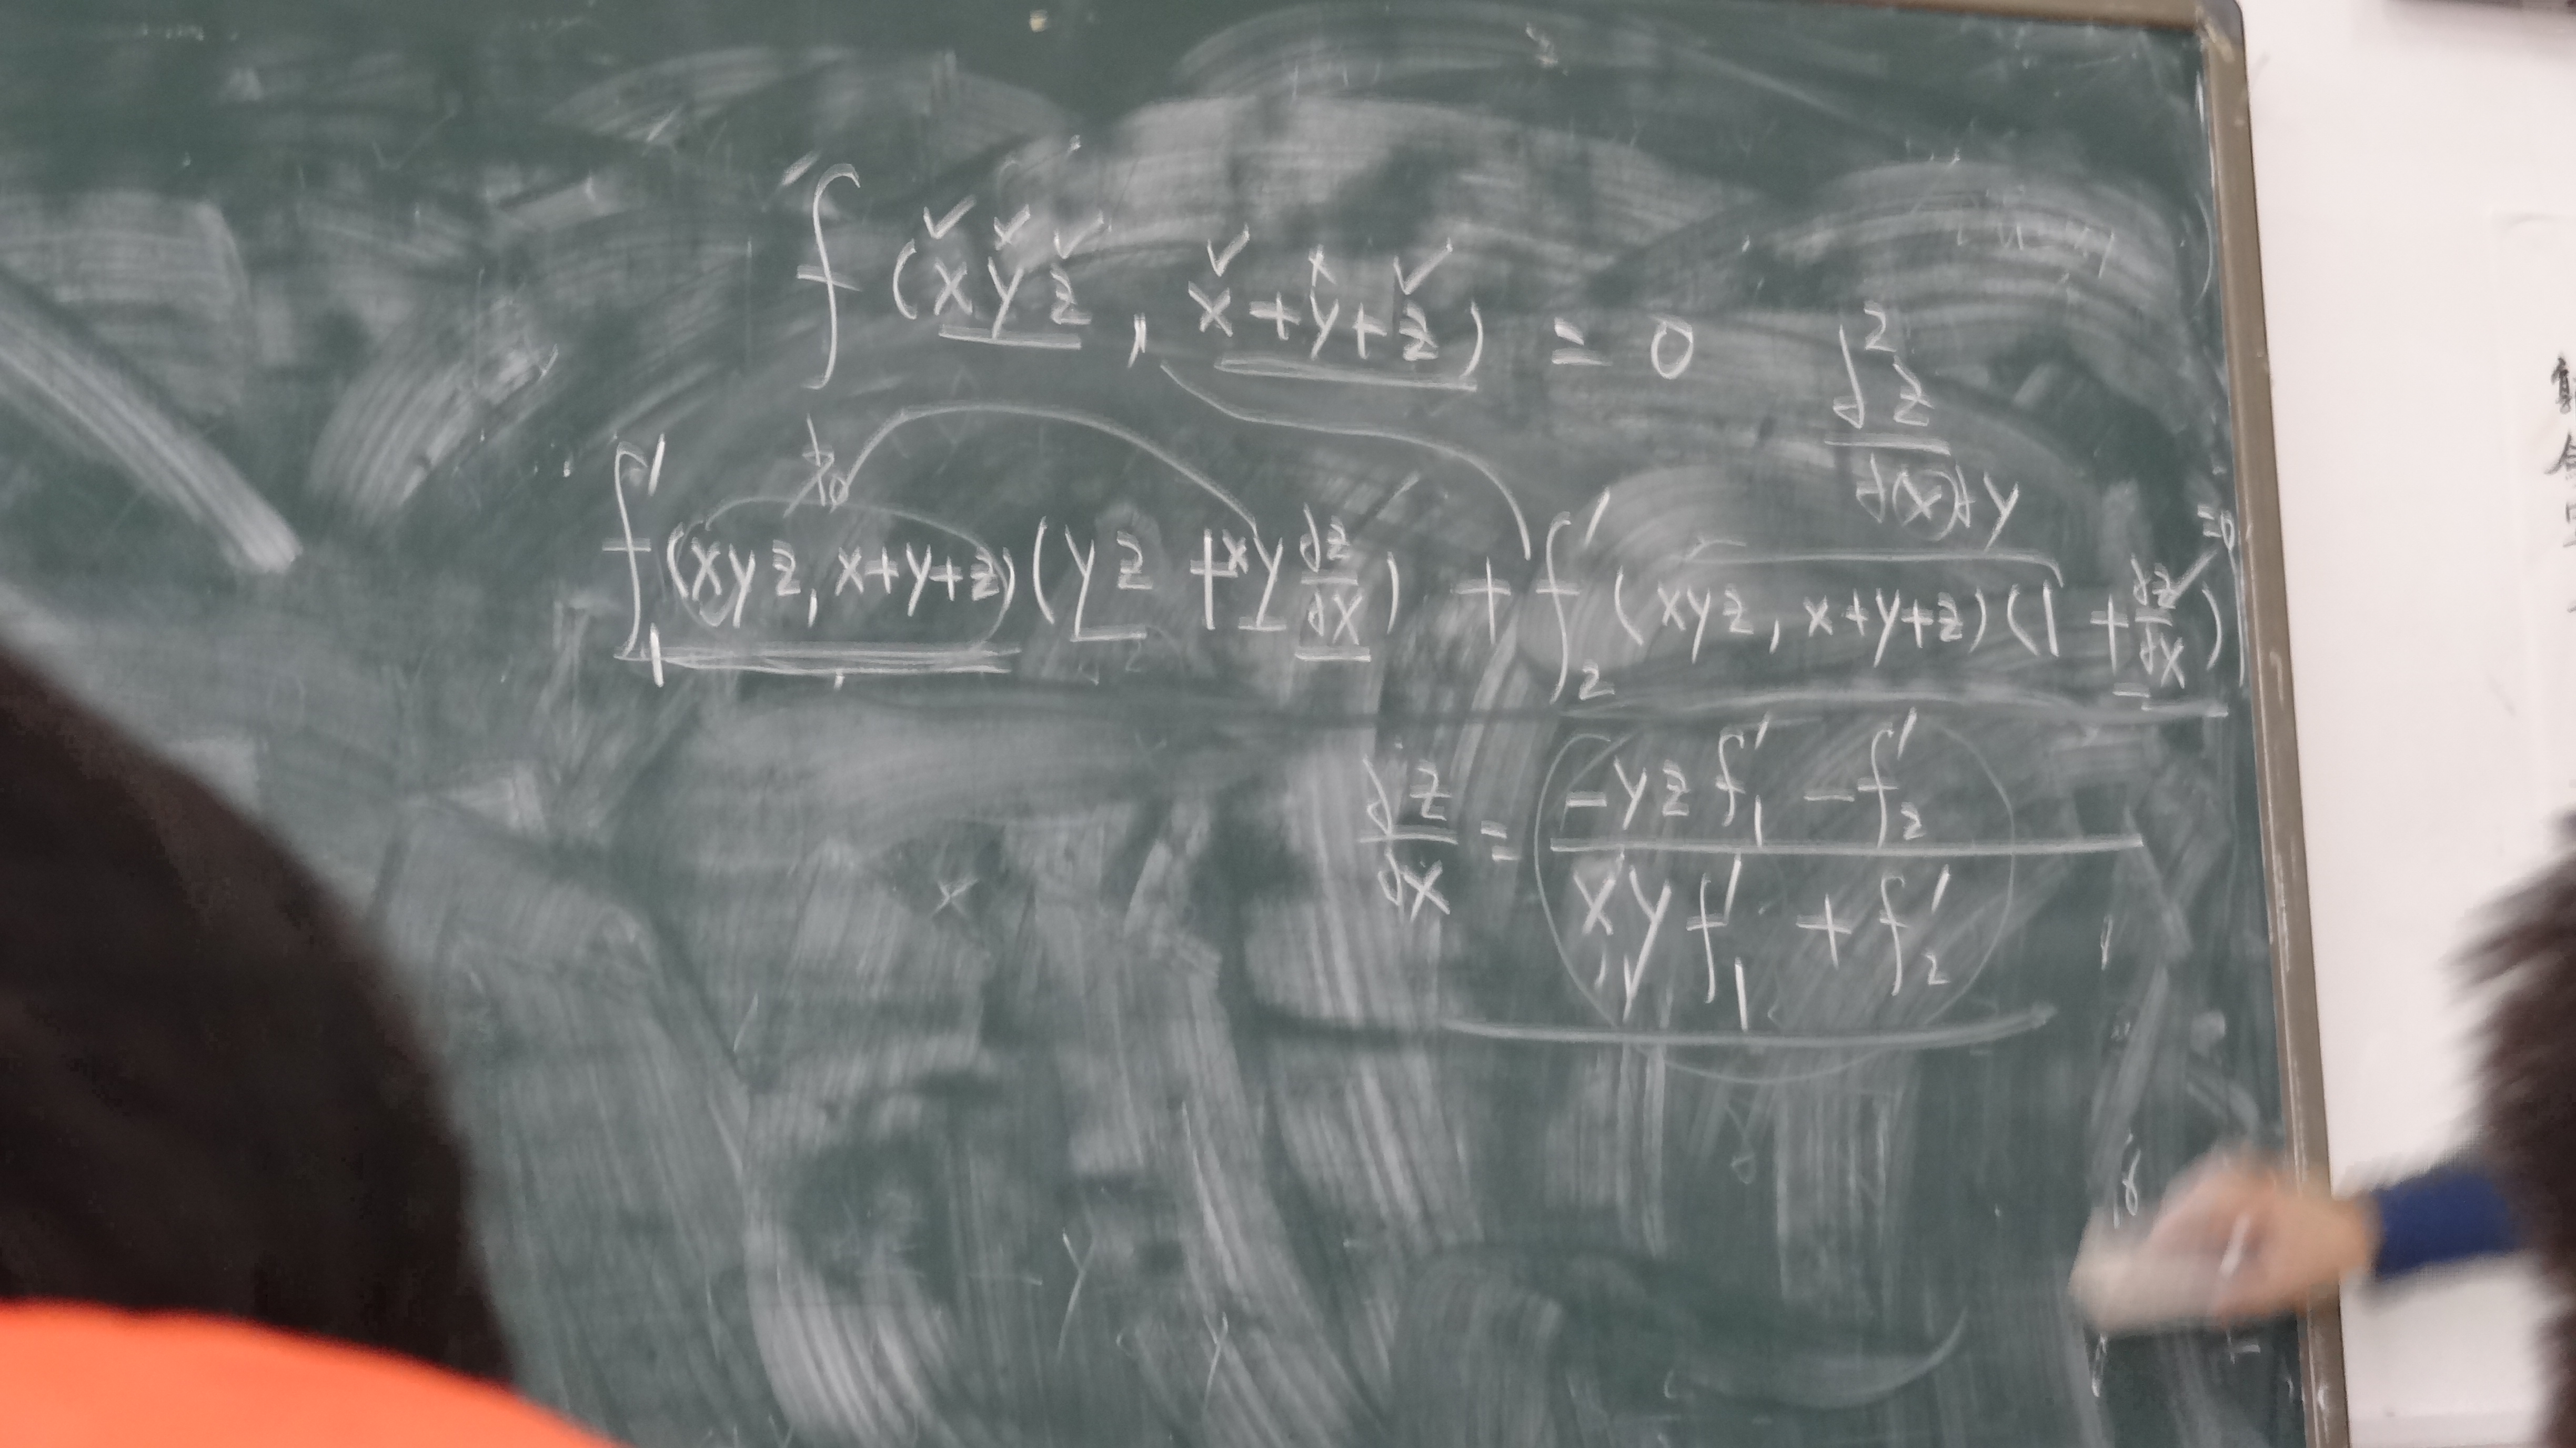 f(xyz, x+y+z) = 0
∂²z/∂x∂y
f'₁(xyz, x+y+z)(yz + xy ∂z/∂x) + f'₂(xyz, x+y+z)(1 + ∂z/∂x) =0
∂z/∂x = (-yz f'₁ - f'₂)/(xy f'₁ + f'₂)